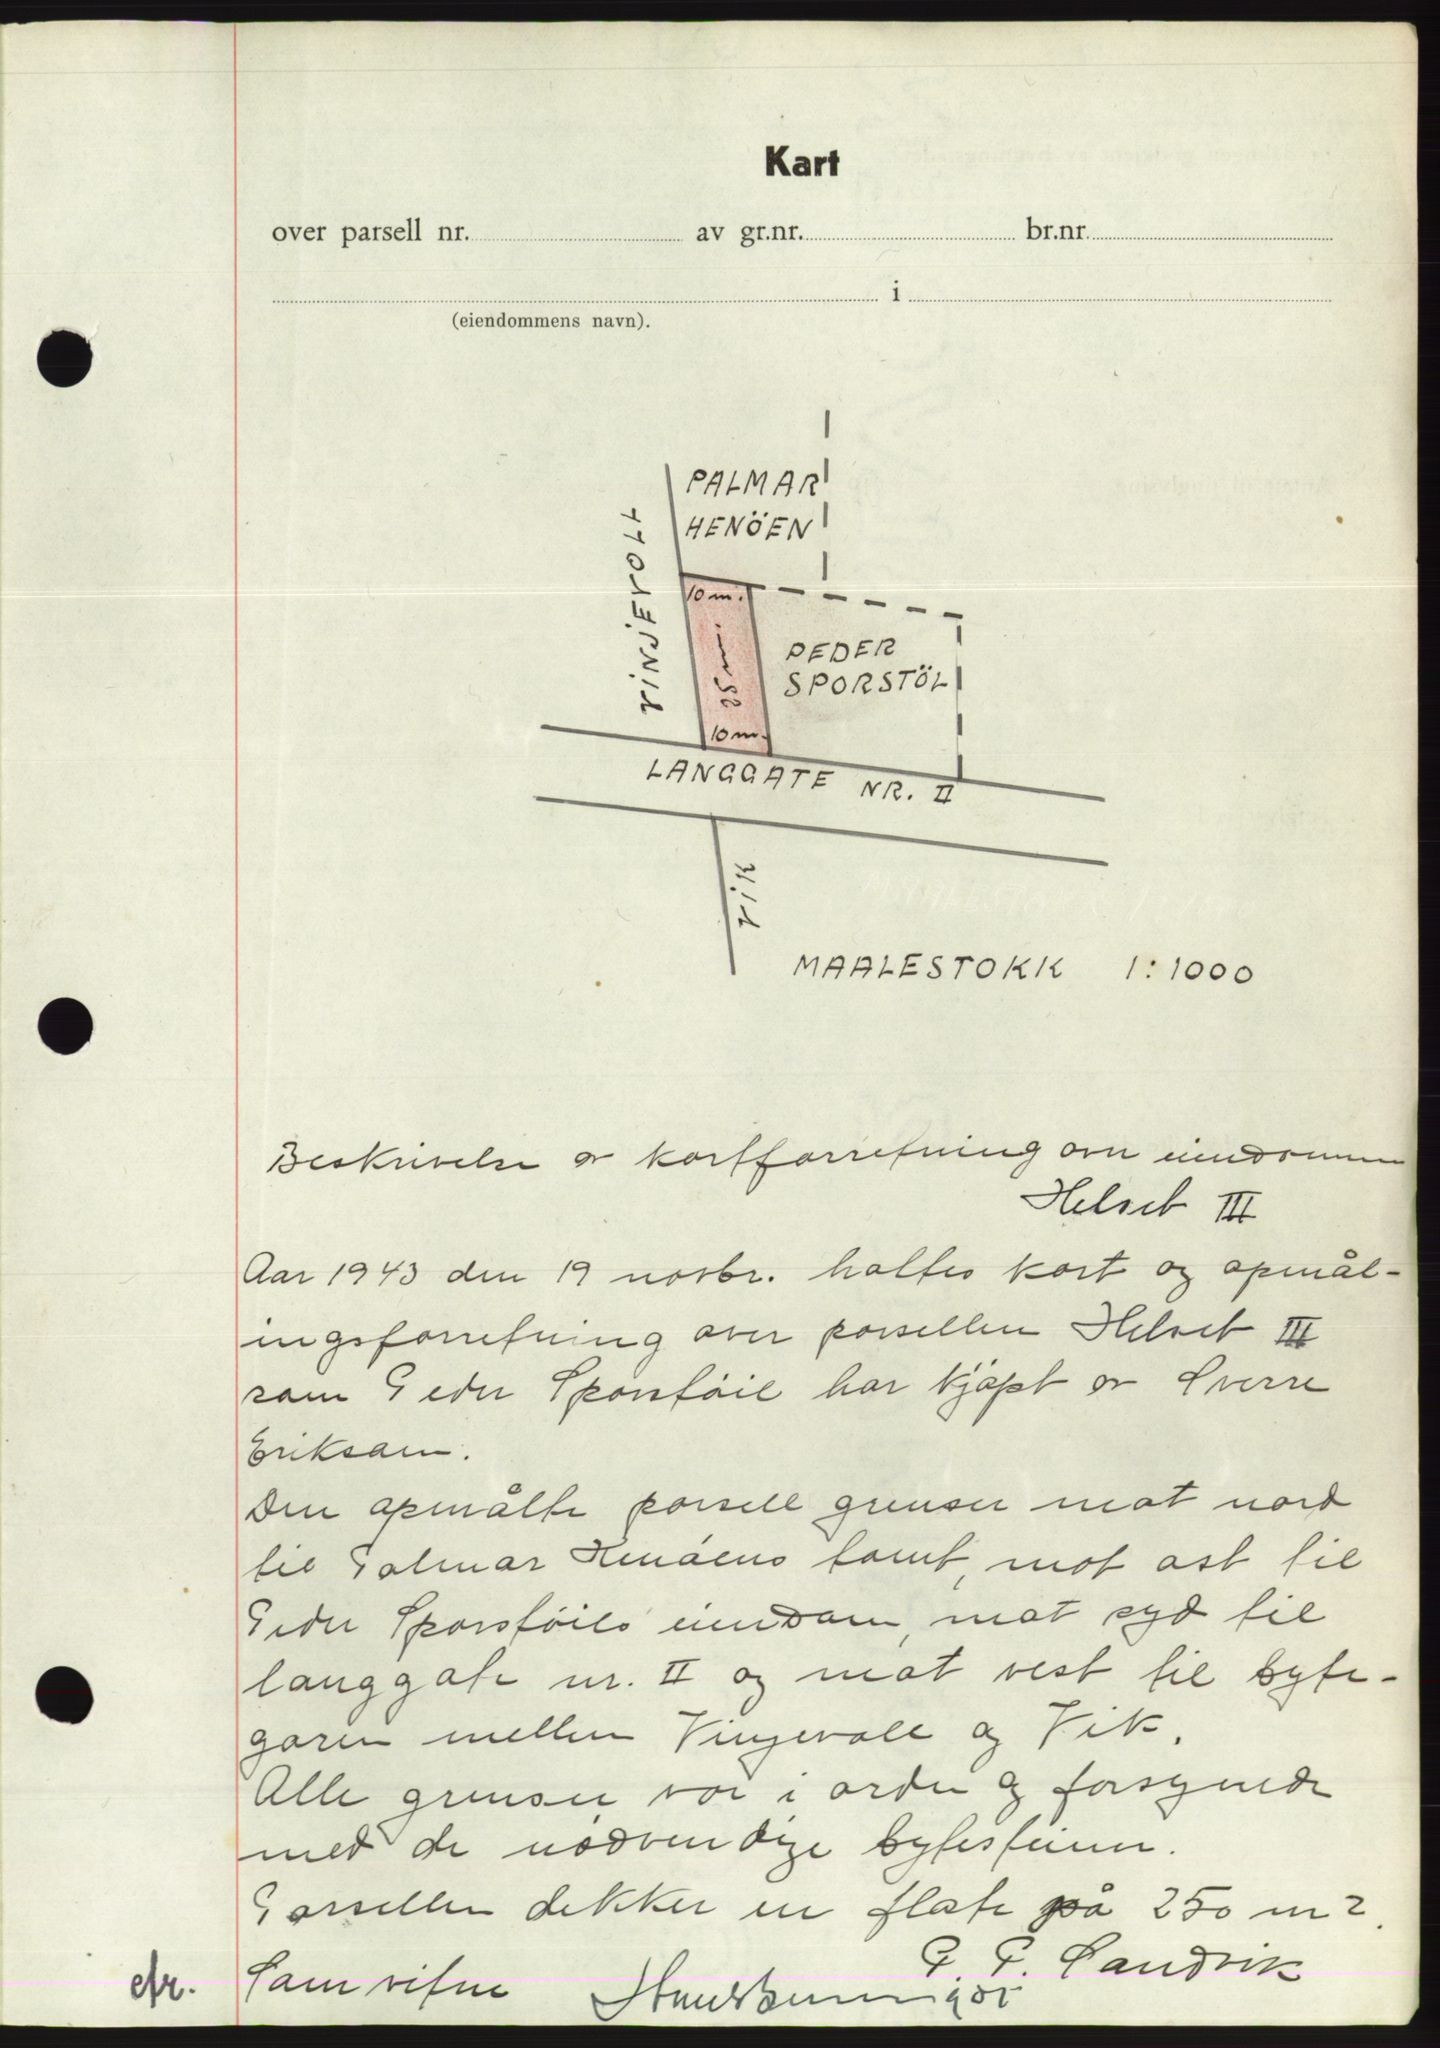 Kart
over parsell nr. av gr.nr. br.nr.
i
(eiendommens navn).
PALMAR
HENÖEN
VINJEVOLL
10 m.
25 m.
PEDER
SPORSTÖL
10 m.
LANGGATE NR. II
VIK
MAALESTOKK 1:1000
Beskrivelse av kartforretning over eiendommen
Helset III
Aar 1943 den 19 novbr. holtes kart og opmål-
ingsforretning over parsellen Helset III
som Peder Sporstöil har kjöpt av Sverre
Eriksen.
Den opmålte parsell grenser mot nord
til Palmar Henöens tomt, mot öst til
Peder Sporstöils eiendom, mot syd til
langgate nr. II og mot vest til byte-
garen mellem Vinjevoll og Vik.
Alle grenser var i orden og forsynede
med de nödvendige bytesteiner.
Parsellen dekker en flate på 250 m2.
P. P. Sandvik
efr. Som vitne